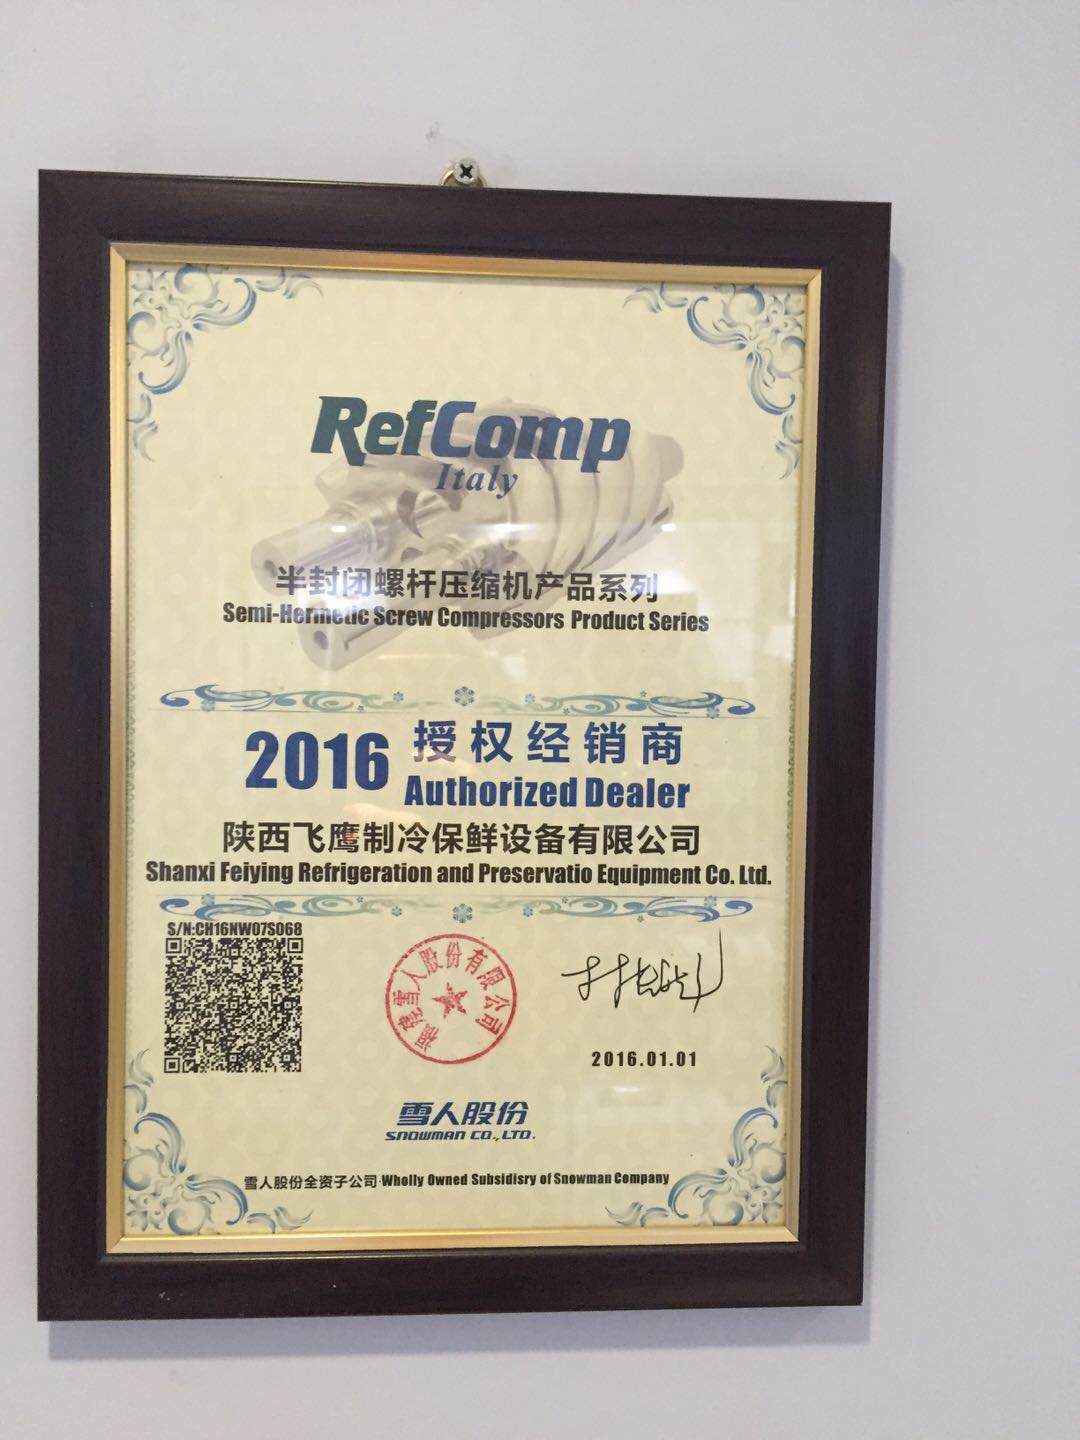 RefComp
Italy
半封闭螺杆压缩机产品系列
Semi-Hermetic Screw Compressors Product Series
2016 授权经销商
Authorized Dealer
陕西飞鹰制冷保鲜设备有限公司
Shanxi Feiying Refrigeration and Preservatio Equipment Co. Ltd.
S/N:CH16NW07S068
福建雪人股份有限公司
2016.01.01
雪人股份
SNOWMAN CO.,LTD.
雪人股份全资子公司·Wholly Owned Subsidisry of Snowman Company